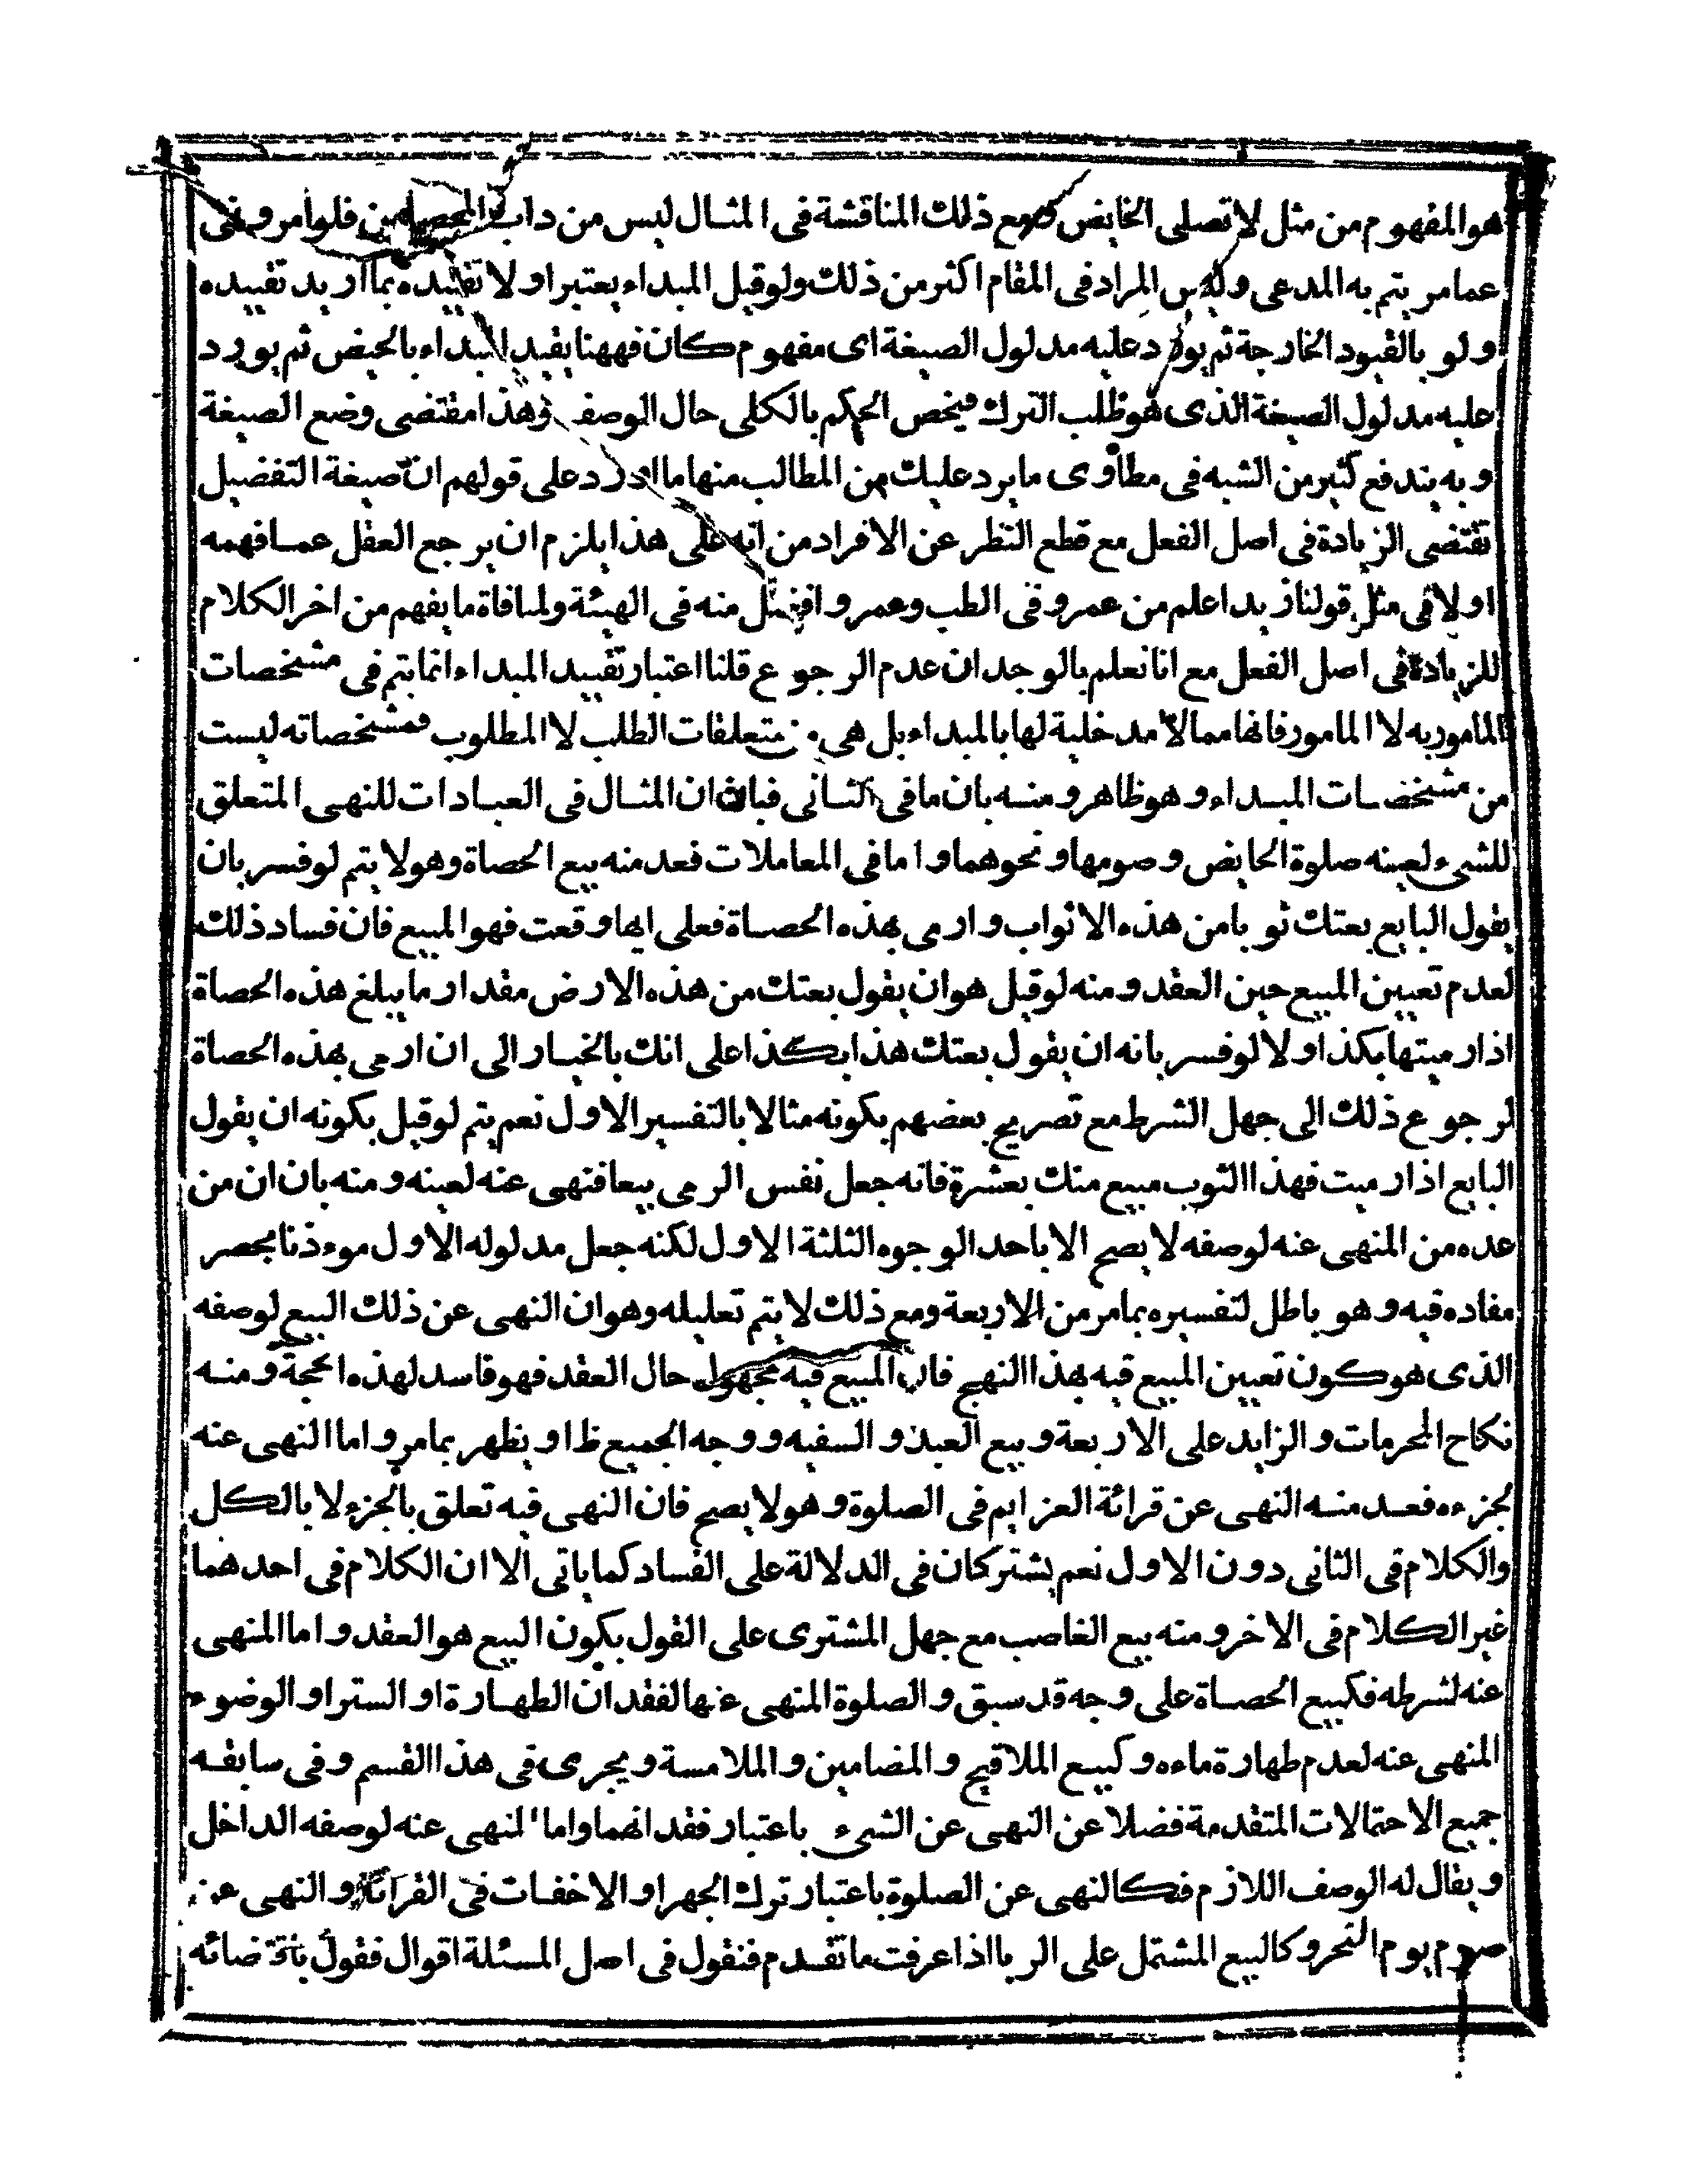 هو المفهوم من مثل لا تصلى الحايض ومع ذلك المناقشة فى المثال ليس من داب المحصلين فلو امر ونهى
عما مر يتم به المدعى وليس المراد فى المقام اكثر من ذلك ولو قيل المبداء يعتبر اولا تقييده بما اريد تقييده
ولو بالقيود الخارجة ثم يورد عليه مدلول الصيغة اى مفهوم كان فههنا يقيد المبداء بالحيض ثم يورد
عليه مدلول الصيغة الذى هو طلب الترك فيخص الحكم بالكلى حال الوصف وهذا مقتضى وضع الصيغة
وبه يندفع كثير من الشبه فى مطاوى ما يرد عليك من المطالب منها ما اورد على قولهم ان صيغة التفضيل
تقتضى الزيادة فى اصل الفعل مع قطع النظر عن الافراد من انه على هذا يلزم ان يرجع العقل عما فهمه
اولا فى مثل قولنا زيد اعلم من عمرو فى الطب وعمرو افضل منه فى الهيئة ولمنافاة ما يفهم من اخر الكلام
للزيادة فى اصل الفعل مع انا نعلم بالوجدان عدم الرجوع قلنا اعتبار تقييد المبداء انما يتم فى مشخصات
المامور به لا المامور فانها مما لا مدخلية لها بالمبداء بل هى من متعلقات الطلب لا المطلوب فمشخصاته ليست
من مشخصات المبداء وهو ظاهر ومنه بان ما فى الثانى فبان ان المثال فى العبادات للنهى المتعلق
للشىء لعينه صلوة الحايض وصومها ونحوهما واما فى المعاملات فعد منه بيع الحصاة وهو لا يتم لو فسر بان
يقول البايع بعتك ثوبا من هذه الاثواب وارمى بهذه الحصاة فعلى ايها وقعت فهو المبيع فان فساد ذلك
لعدم تعيين المبيع حين العقد ومنه لو قيل هو ان يقول بعتك من هذه الارض مقدار ما يبلغ هذه الحصاة
اذا رميتها بكذا ولا لو فسر بانه ان يقول بعتك هذا بكذا على انك بالخيار الى ان ارمى بهذه الحصاة
لرجوع ذلك الى جهل الشرط مع تصريح بعضهم بكونه مثالا بالتفسير الاول نعم يتم لو قيل بكونه ان يقول
البايع اذا رميت فهذا الثوب مبيع منك بعشرة فانه جعل نفس الرمى بيعا فنهى عنه لعينه ومنه بان ان من
عده من المنهى عنه لوصفه لا يصح الا باحد الوجوه الثلثة الاول لكنه جعل مدلوله الاول موءذنا بحصر
مفاده فيه وهو باطل لتفسيره بما مر من الاربعة ومع ذلك لا يتم تعليله وهو ان النهى عن ذلك البيع لوصفه
الذى هو كون تعيين المبيع فيه بهذا النهج فان المبيع فيه مجهول حال العقد فهو فاسد لهذه الحجة ومنه
نكاح المحرمات والزايد على الاربعة وبيع العبد والسفيه ووجه الجميع ظ او يظهر بما مر واما النهى عنه
لجزءه فعد منه النهى عن قرائة العزايم فى الصلوة وهو لا يصح فان النهى فيه تعلق بالجزء لا بالكل
والكلام فى الثانى دون الاول نعم يشتركان فى الدلالة على الفساد كما ياتى الا ان الكلام فى احدهما
غير الكلام فى الاخر ومنه بيع الغاصب مع جهل المشترى على القول بكون البيع هو العقد واما المنهى
عنه لشرطه فكبيع الحصاة على وجه قد سبق والصلوة المنهى عنها لفقدان الطهارة او الستر او الوضوء
المنهى عنه لعدم طهارة ماءه وكبيع الملاقيح والمضامين والملامسة ويجرى فى هذا القسم وفى سابقه
جميع الاحتمالات المتقدمة فضلا عن النهى عن الشىء باعتبار فقدانهما واما المنهى عنه لوصفه الداخل
ويقال له الوصف اللازم فكالنهى عن الصلوة باعتبار ترك الجهر او الاخفات فى القرائة والنهى عن
صوم يوم النحر وكالبيع المشتمل على الربا اذا عرفت ما تقدم فنقول فى اصل المسئلة اقوال فقول باقتضائه